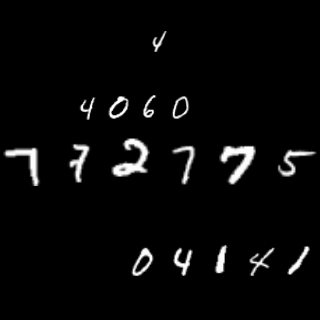 4
4060
772775
04141